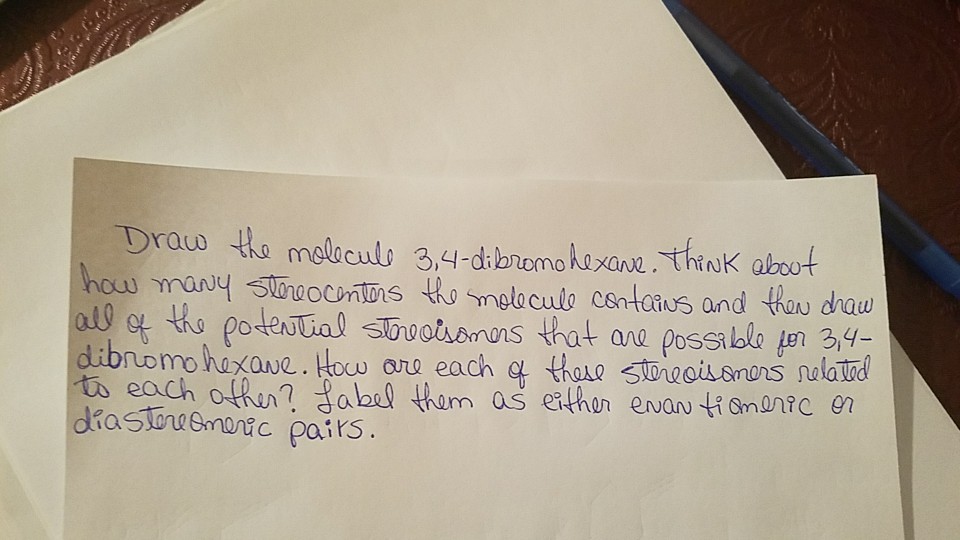 Draw the molecule 3,4-dibromohexane. Think about
how many stereocenters the molecule contains and then draw
all of the potential stereoisomers that are possible for 3,4-
dibromohexane. How are each of these stereoisomers related
to each other? Label them as either enantiomeric or
diastereomeric pairs.